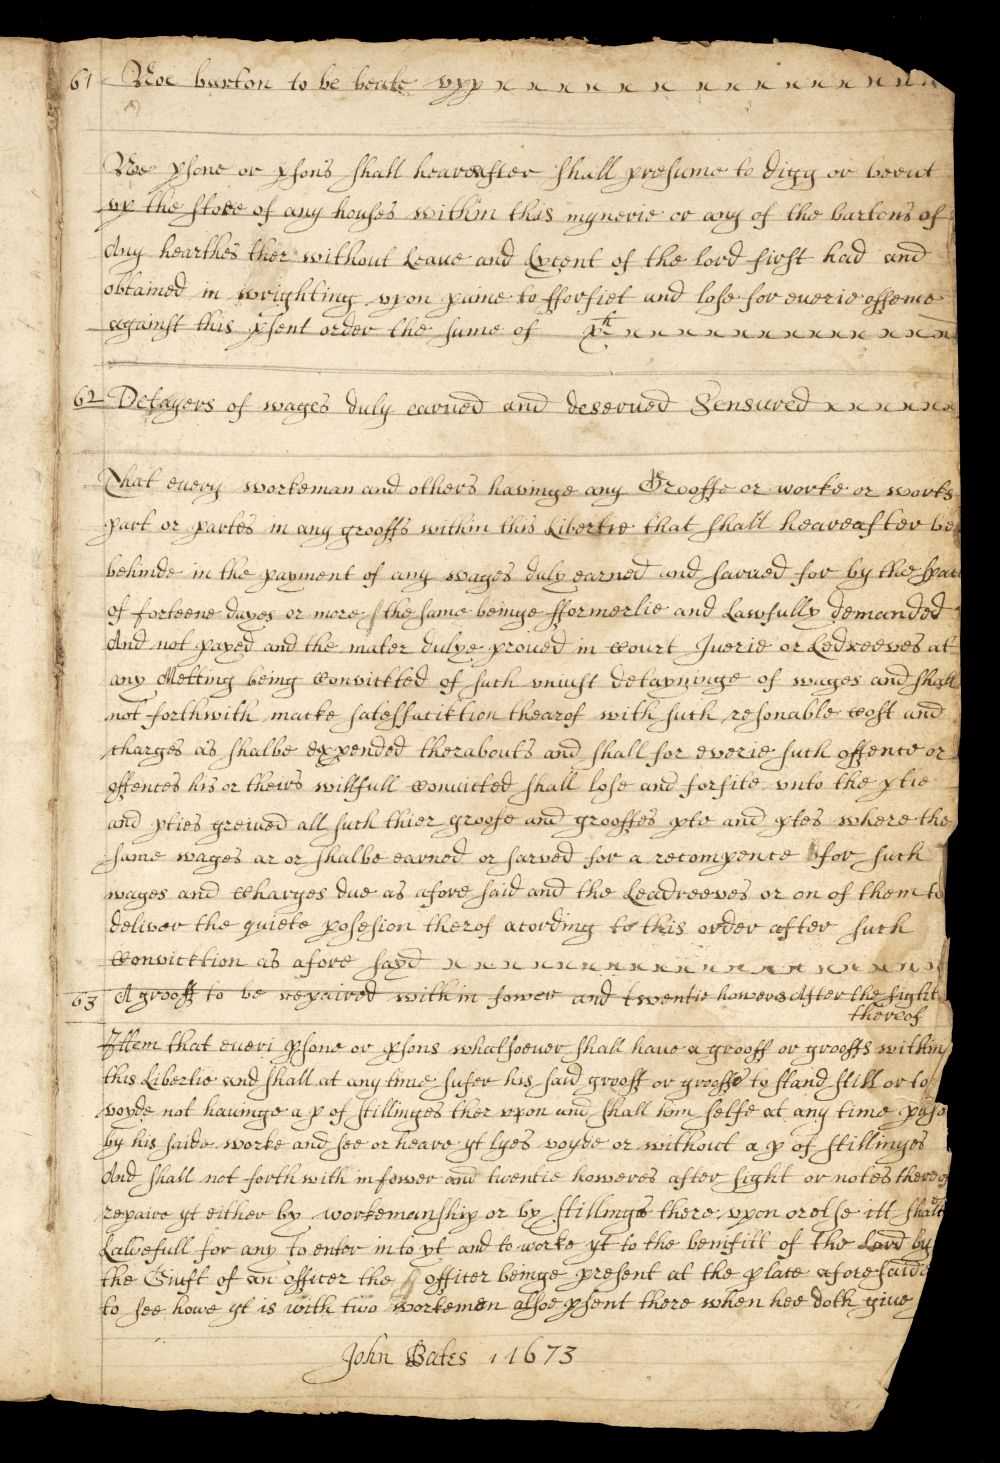 61 Noe barton to be beate vpp x x x x x x x x x x x x x x x
Noe psone or psons shall heareafter shall presume to digg or breut
vp the store of any houses within this mynerie or any of the bartons of
Any hearthes ther without Leaue and Lycent of the lord first had and
obtained in wrighting vpon paine to fforfiet and lose for euerie offence
against this psent order the sume of xx x x x x x x x x x x x
62 Detayers of wages duly earned and deserued Sensured x x x x x x
That euery workeman and others havinge any Grooffe or worke or works
part or partes in any grooffs within this Libertie that shall heareafter be
behinde in the payment of any wages duly earned and sarued for by the spac
of forteene dayes or more / the same beinge fformerlie and Lawfully demanded
And not payed and the mater dulye proued in Court Juerie or Ledreeves at
any Metting being Convictted of such vniust detayninge of wages and shall
not forthwith macke satesfacittion thearof with such resonable Cost and
charges as shalbe expended therabouts and shall for everie such offence or
offences his or theirs willfull Convicted shall lose and forfite vnto the ptie
and pties greiued all such thier groofe and grooffes pte and ptes where the
same wages ar or shalbe earned or sarved for a recompence for such
wages and Charges due as afore said and the Leadreeves or on of them to
deliver the quiete posesion therof acording to this order after such
Convicttion as afore sayd x x x x x x x x x x x x x x x
63 A grooff to be repaired within fower and twentie howers After the sight
thereof
Ittem that eueri psone or psons whatsoeuer shall haue a grooff or grooffs within
this Libertie and shall at any time sufer his said grooff or grooffs to stand still or to
voyde not hauinge a p of stillinges ther vpon and shall him selfe at any time pass
by his saide worke and see or heare yt lyes voyde or without a p of stillinges
And shall not forthwith in fower and twentie howeres after sight or notes thereof
repaire yt either by workemanship or by stillings there vpon or else itt shalbe
Lawefull for any to enter in to yt and to worke yt to the benifitt of the Lord by
the Giuft of an officer the officer beinge present at the place afore saide
to see howe yt is with two workemen alsoe psent there when hee doth giue
John Bates 1673